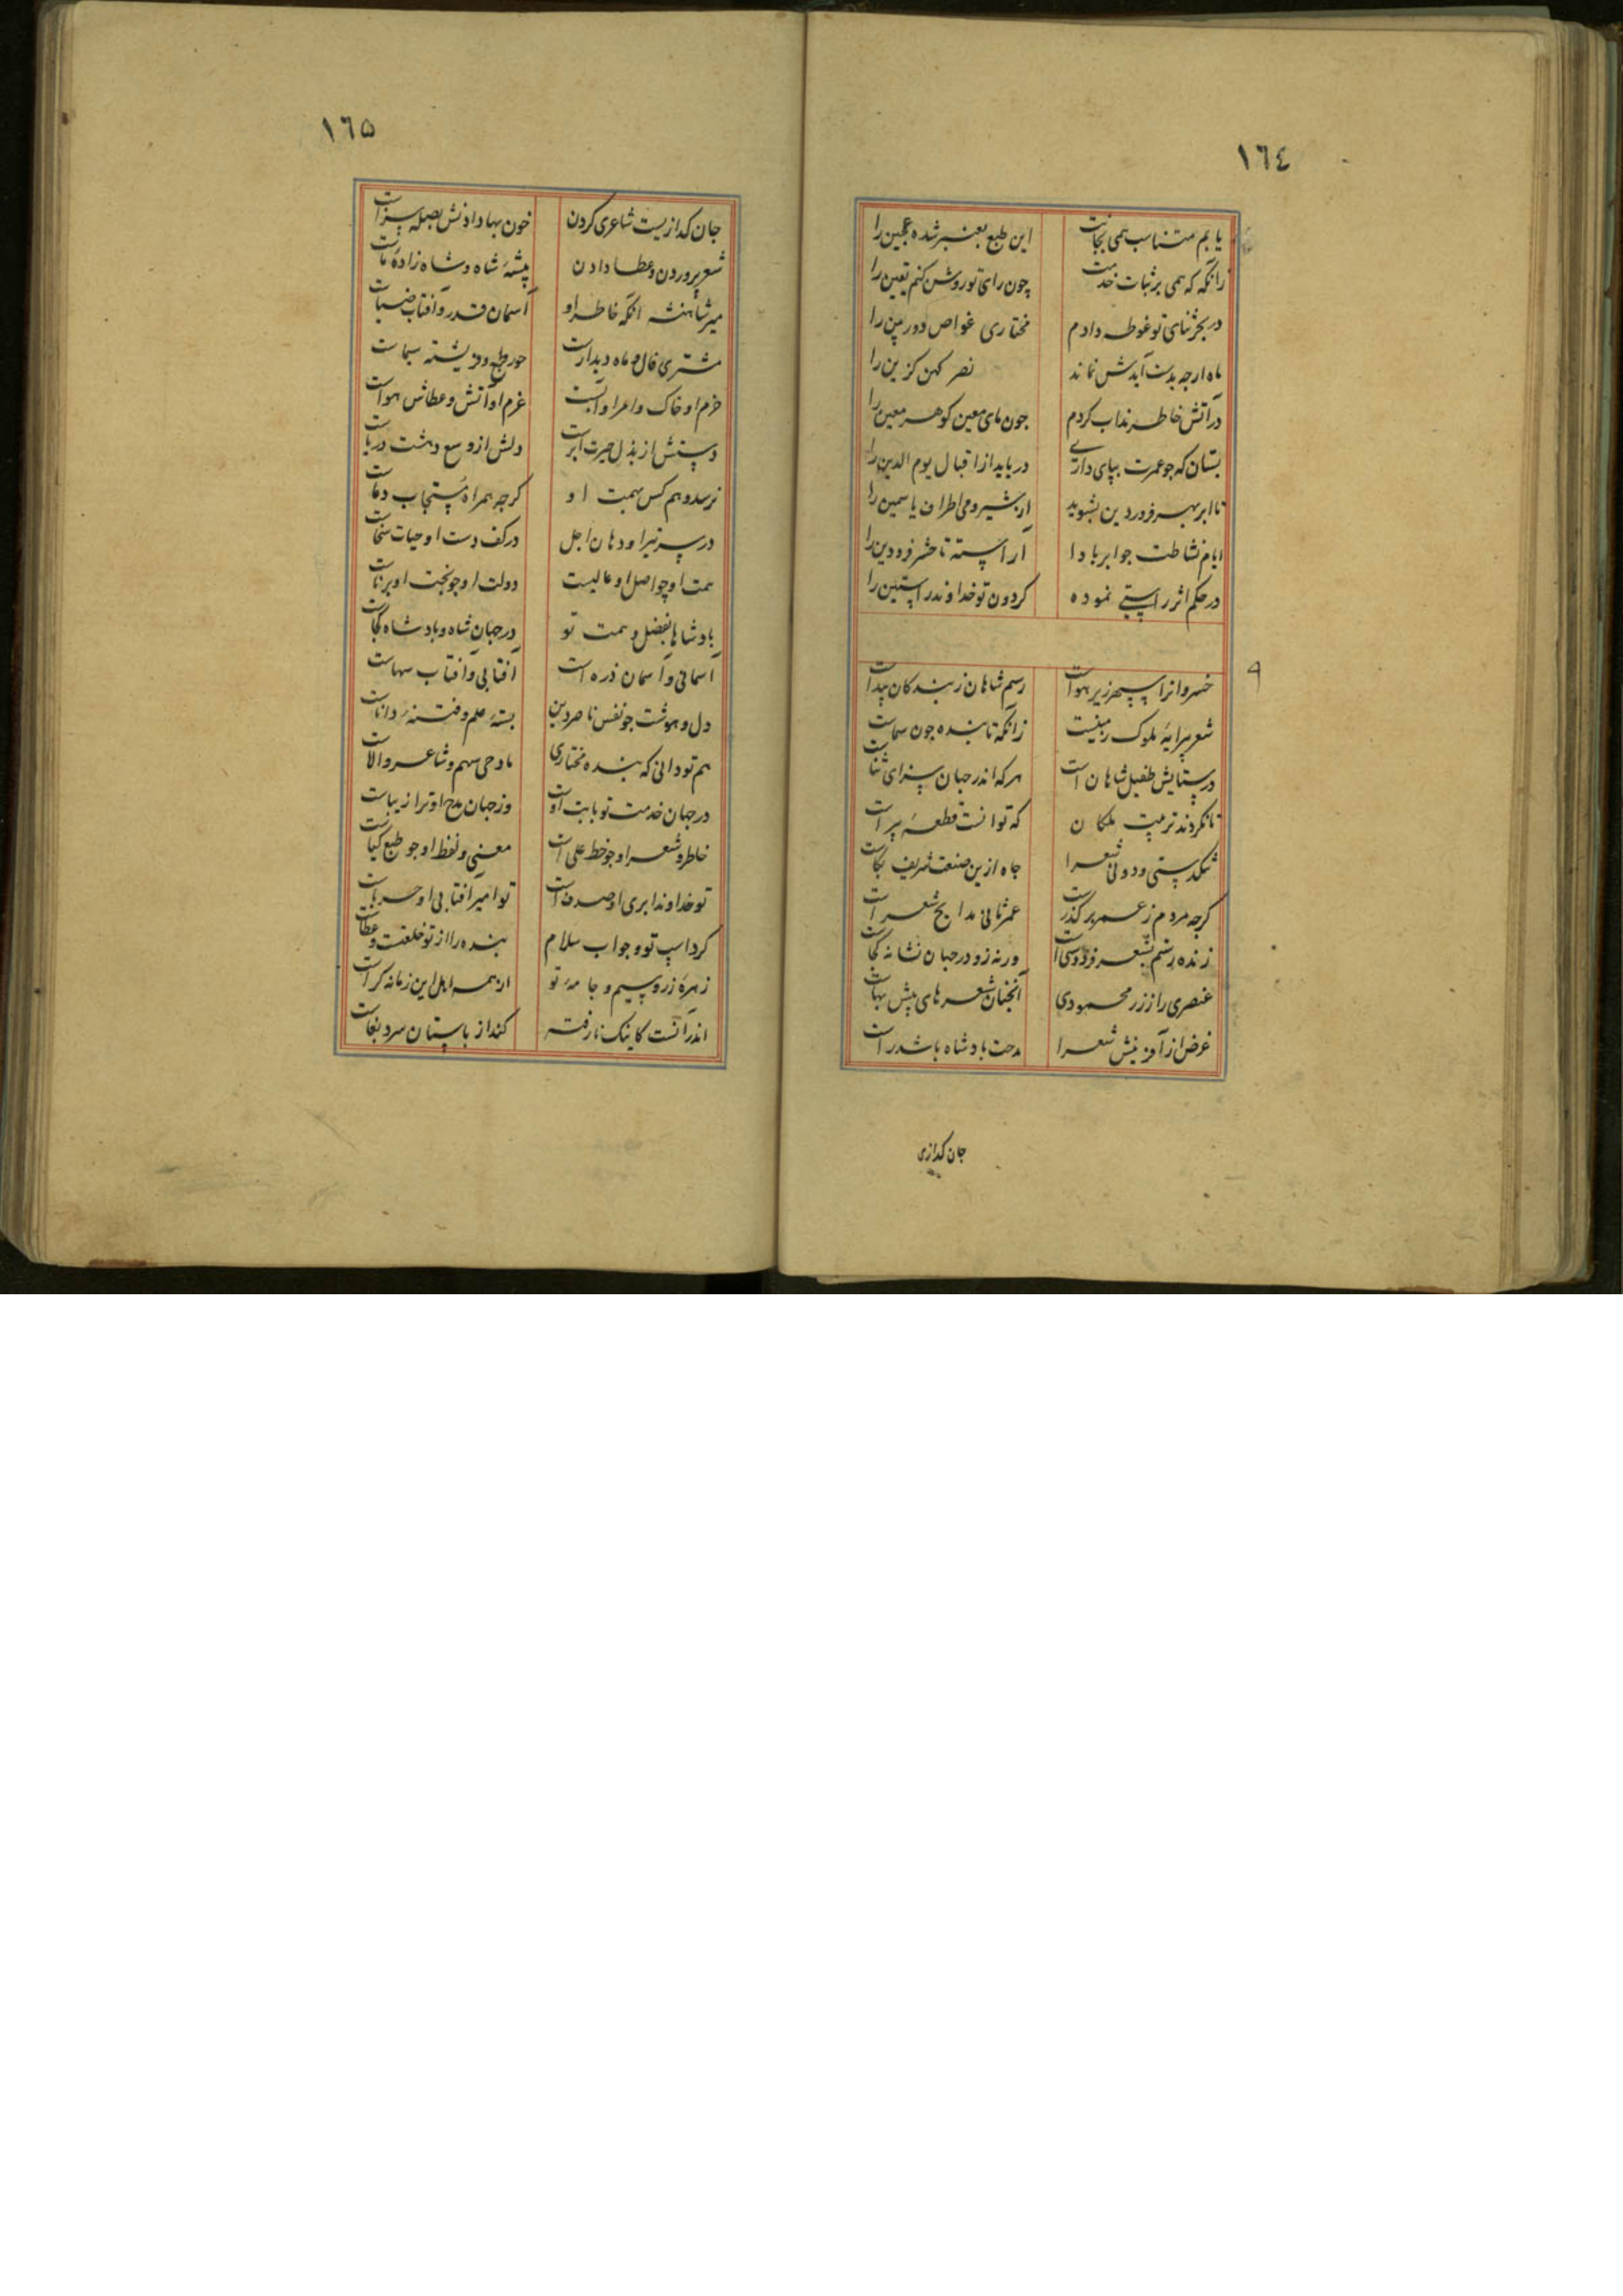 ١٦٤
یابم متناسب همی بجانت این طبع بعنبر شده عجین را
زانگه که همی بر ثبات خدمت چون رای تو روشن کنم یقین را
در بحر ثنای تو غوطه دادم مختاری غواص دوربین را
ماه ارجه بدست آیدش نماند نصر کهن کزین را
در آتش خاطر نداب کردم جون مای معین کوهر معین را
بستان که جو عمرت بپای داری دریابد از اقبال یوم الدین را
تا ابر بهر فوردین بشوید از شیر و می اطراف یاسمین را
ایام نشاطت جوابر بادا آراسته تا حشر فرودین را
در حکم اثر راستی نموده کردون تو خداوند راستین را
خسروانرا سپهر زیر هواست رسم شاهان ز بندکان پیداست
شعر پیرایهٔ ملوک زمینست زانکه تابنده جون سماست
در ستایش طفیل شاهان است هرکه اندر جهان سزای ثناست
تا نکردند تربیت ملکان که توانست قطعهٔ پیراست
تنکدستی و دونی شعرا جاه ازین صنعت شریف بکاست
کرچه مردم ز عمر بر کذرست عمر ثانی مدایح شعراست
زنده رستم بشعر فردوسی است ورنه زو در جهان نشانه کجاست
عنصری را ز زر محمودی آنچنان شعرهای بیش بهاست
غرض از آفرینش شعرا مدحت بادشاه باشد راست
جان کدازی
١٦٥
جان کدازیست شاعری کردن خون بها دادنش بصله سزاست
شعر پروردن و عطا دادن پیشهٔ شاه و شاه زادهٔ ماست
میر شاهنشه انکه خاطر او آسمان قدر و آفتاب ضیاست
مشتری فال و ماه دیدارست حور طبع و فریشته سیماست
حزم او خاک و امر او آبست عزم او آتش و عطاش هواست
دستش از بذل حیرت ابرست دلش از وسع دهشت دریاست
نرسد وهم کس بهمت او کرچه همراه مستجاب دعاست
در سر تیر او دهان اجل در کف دست او حیات سخاست
همت او چو اصل او عالیست دولت او جو بخت او برناست
بادشاها بفضل و همت تو در جهان شاه و بادشاه کجاست
آسمانی و آسمان ذره است آفتابی و آفتاب سهاست
دل و هوشت جو نفس ناصر دین بستهٔ علم و فتنهٔ داناست
هم تو دانی که بنده مختاری مادحی سهم و شاعر والاست
در جهان خدمت تو بابت اوست وز جهان مدح او ترا زیباست
خاطر و شعر او جو خط علی است معنی و لفظ او جو طبع کیاست
تو خداوند ابری او صدف است تو امیر آفتابی او حرباست
کرد اسپ تو و جواب سلام بنده را از تو خلعت و عطاست
زهرهٔ زر و سیم و جامهٔ تو از همه اهل این زمانه کراست
اندر آنست کاینک نارفته کند از باستان سرد بغاست